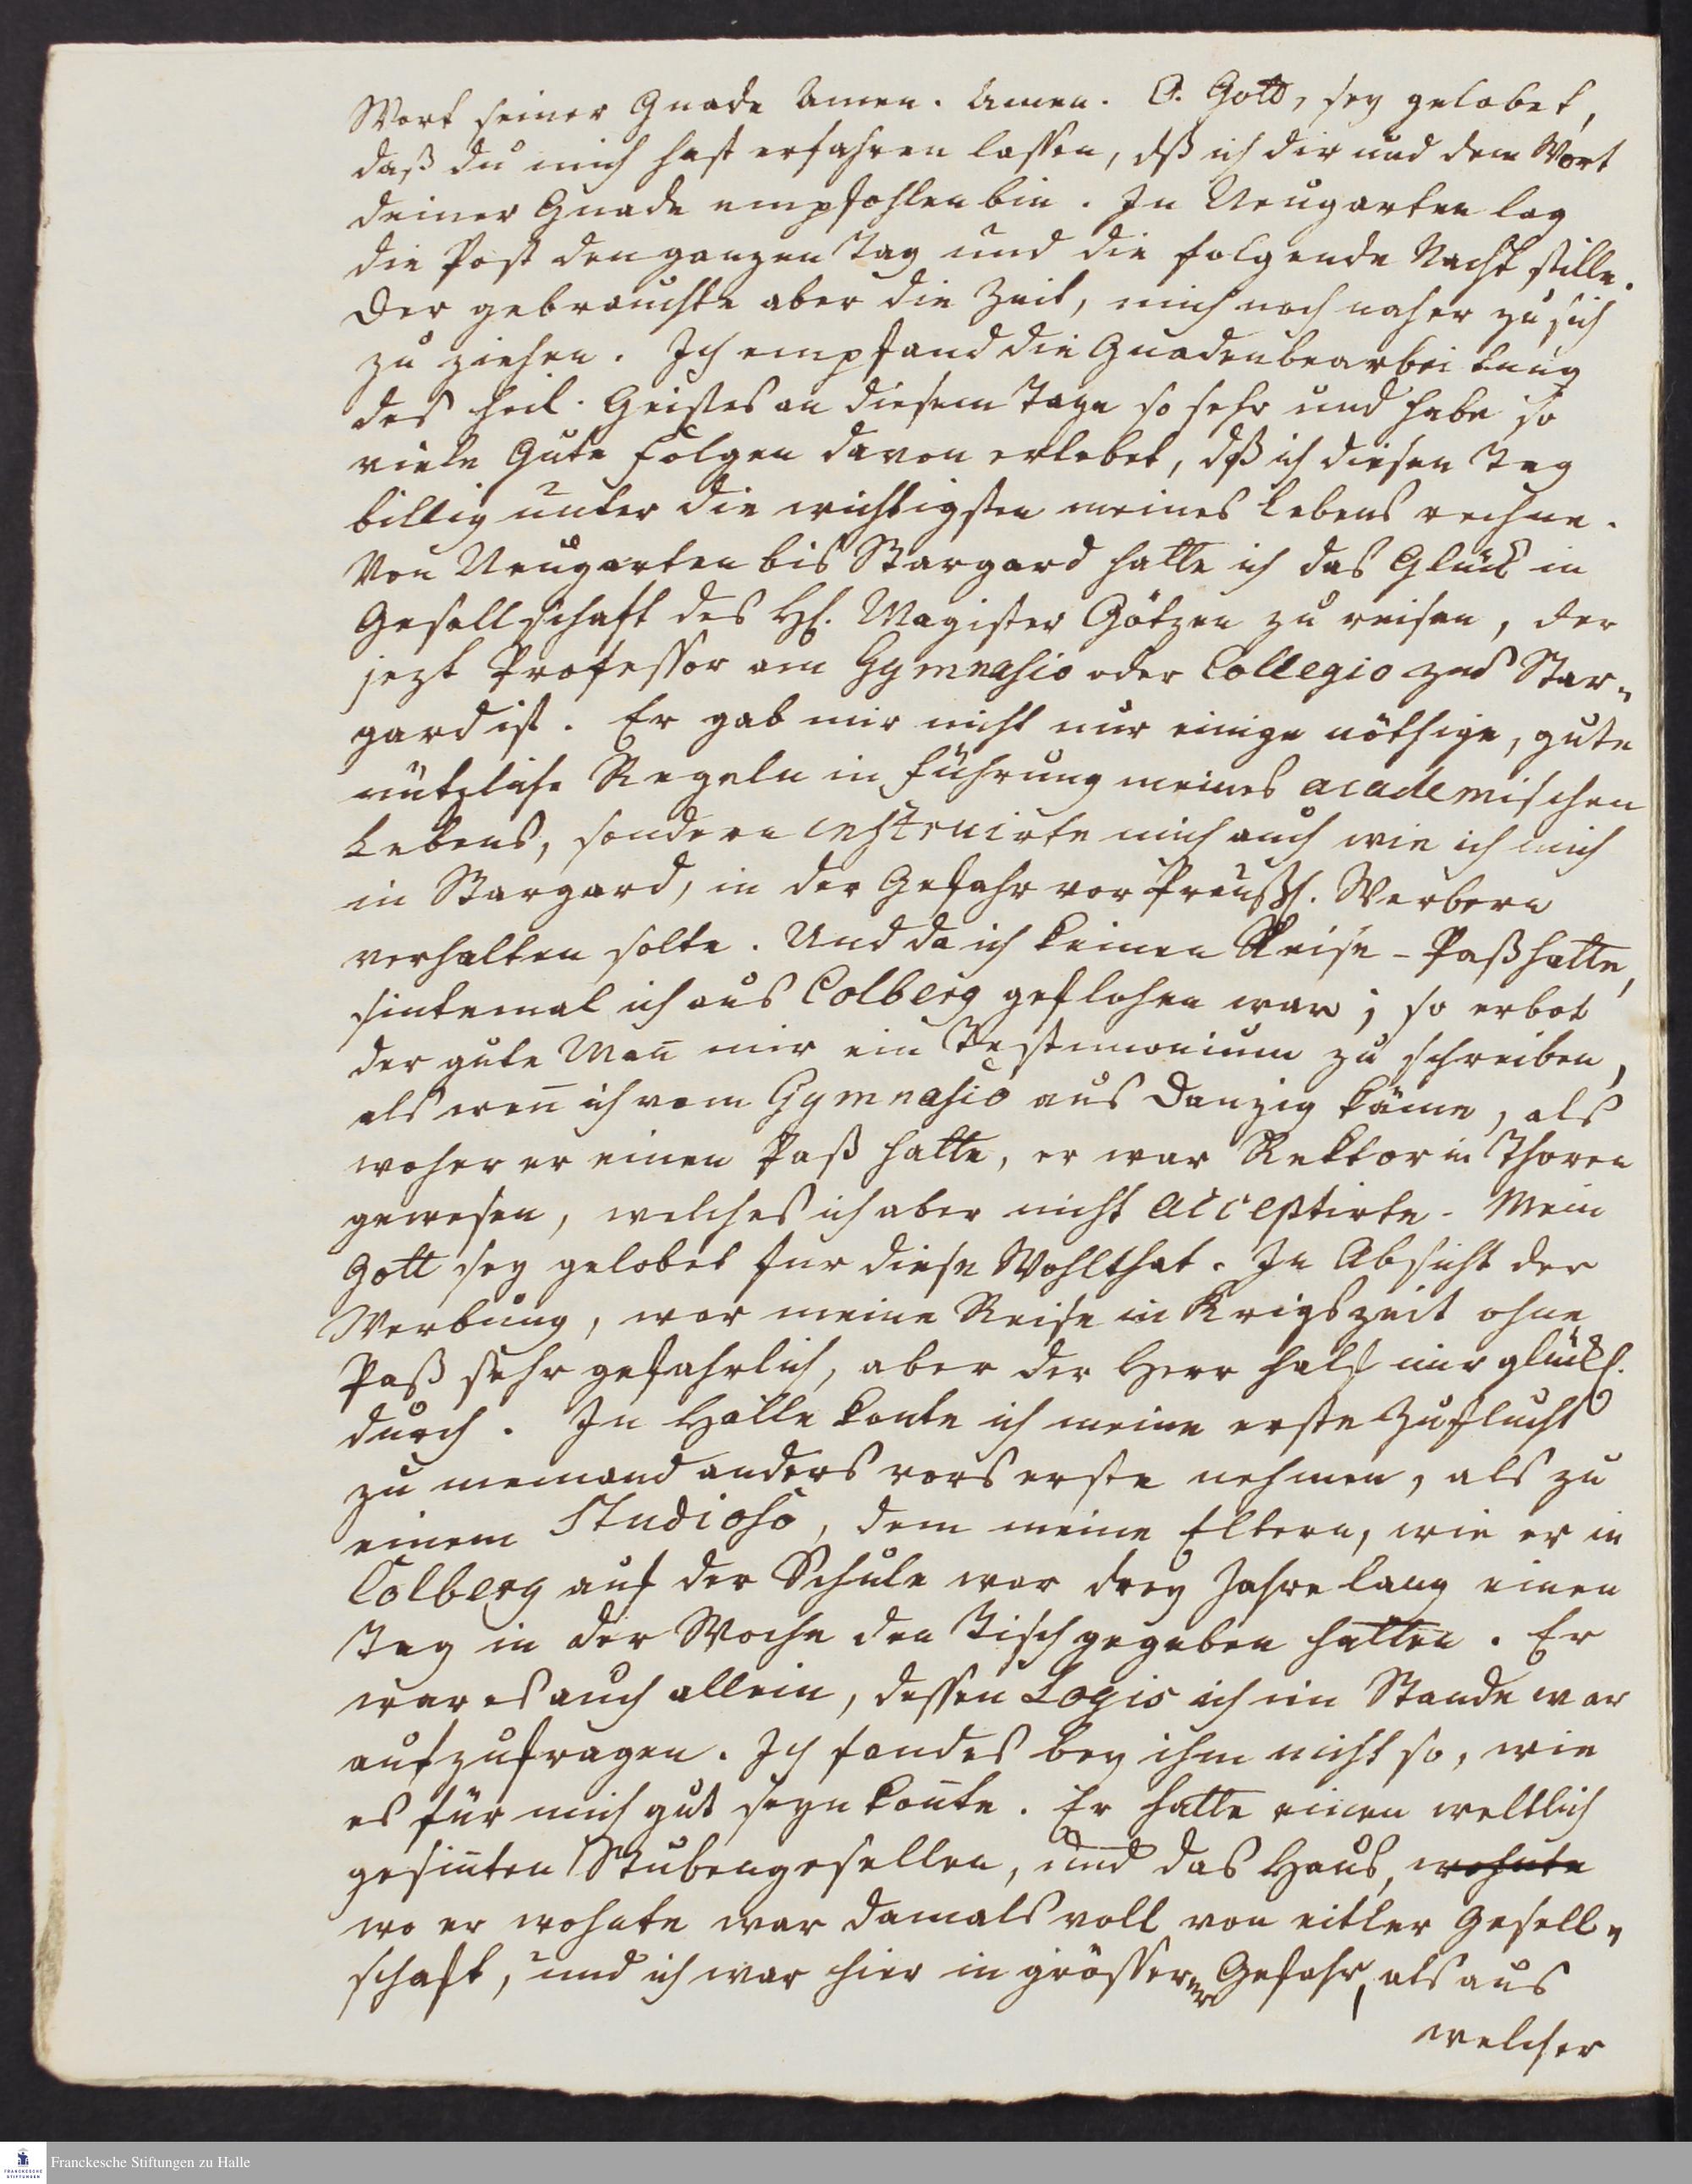 Wort seiner Gnade Amen. Amen. O. Gott, sey gelobet,
daß du mich hast erfahren lassen, dß ich dir und dem Wort
deiner Gnade empfohlen bin. In Neugarten lag
die Post den ganzen Tag und die folgende Nacht stille.
Der gebrauchte aber die Zeit, mich noch naher zu sich
zu ziehen. Ich empfand die Gnadenbearbeitung
des heil. Geistes an diesem Tage so sehr und habe so
viele Gute Folgen davon erlebet, dß ich diesen Tag
billig unter die wichtigsten meines Lebens rechne.
Von Neugarten bis Stargard hatte ich das Glück in
Gesellschaft des H. Magister Götzen zu reisen, der
jezt Professor am Gymnasio oder Collegio zu Star„
gard ist. Er gab mir nicht nur einige nöthige, gute
nützliche Regeln in Führung meines academischen
Lebens, sondern instruirte mich auch wie ich mich
in Stargard, in der Gefahr vor Preußs. Werbern
verhalten solte. Und da ich keinen Reise-Paß hatte,
sintemal ich aus Colberg geflohen war; so erbot
der gute Man̄ mir ein Testimonium zu schreiben,
als wen̄ ich vom Gymnasio aus Danzig käme, als
woher er einen Paß hatte, er war Rektor in Thoren
gewesen, welches ich aber nicht acceptirte. Mein
Gott sey gelobet fur diese Wohlthat. In Absicht der
Werbung, war meine Reise in Krigszeit ohne
Paß sehr gefahrlich, aber der Herr half mir glückl.
durch. In Halle konte ich meine erste Zuflucht
zu niemand anders vors erste nehmen, als zu
einem Studioso, dem meine Eltern, wie er in
Colberg auf der Schule war drey Jahre lang einen
Tag in der Woche den Tisch gegeben hatten. Er
war es auch allein, dessen Logis ich im Stande war
aufzufragen. Ich fand es bey ihm nicht so, wie
es für mich gut seyn kon̄te. Er hatte einen weltlich
gesin̄ten Stubengesellen, und das Haus, wohnte
wo er wohnte war damals voll von eitler Gesell„
schaft, und ich war hier in grösserer Gefahr, als aus
welcher
Franckesche Stiftungen zu Halle